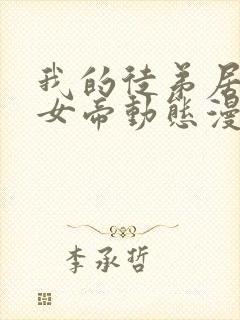 我的徒弟居
女帝動態漫
李承哲